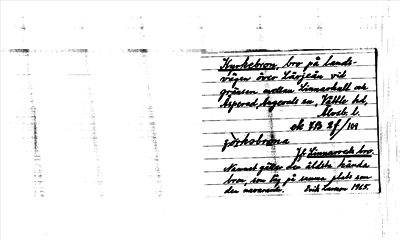 Kyrkebron, bro på lands-
vägen över Lärjeån vid
gränsen mellan Linnarhult och
Aspered, Angereds sn, Vättle hd,
Älvsb. l.
ek 7B 2f/101
Jf. Linnarreds bro.
Namnet gäller den äldsta kända
bron, som låg på samma plats som
den nuvarande. Erik Larsson 1965.